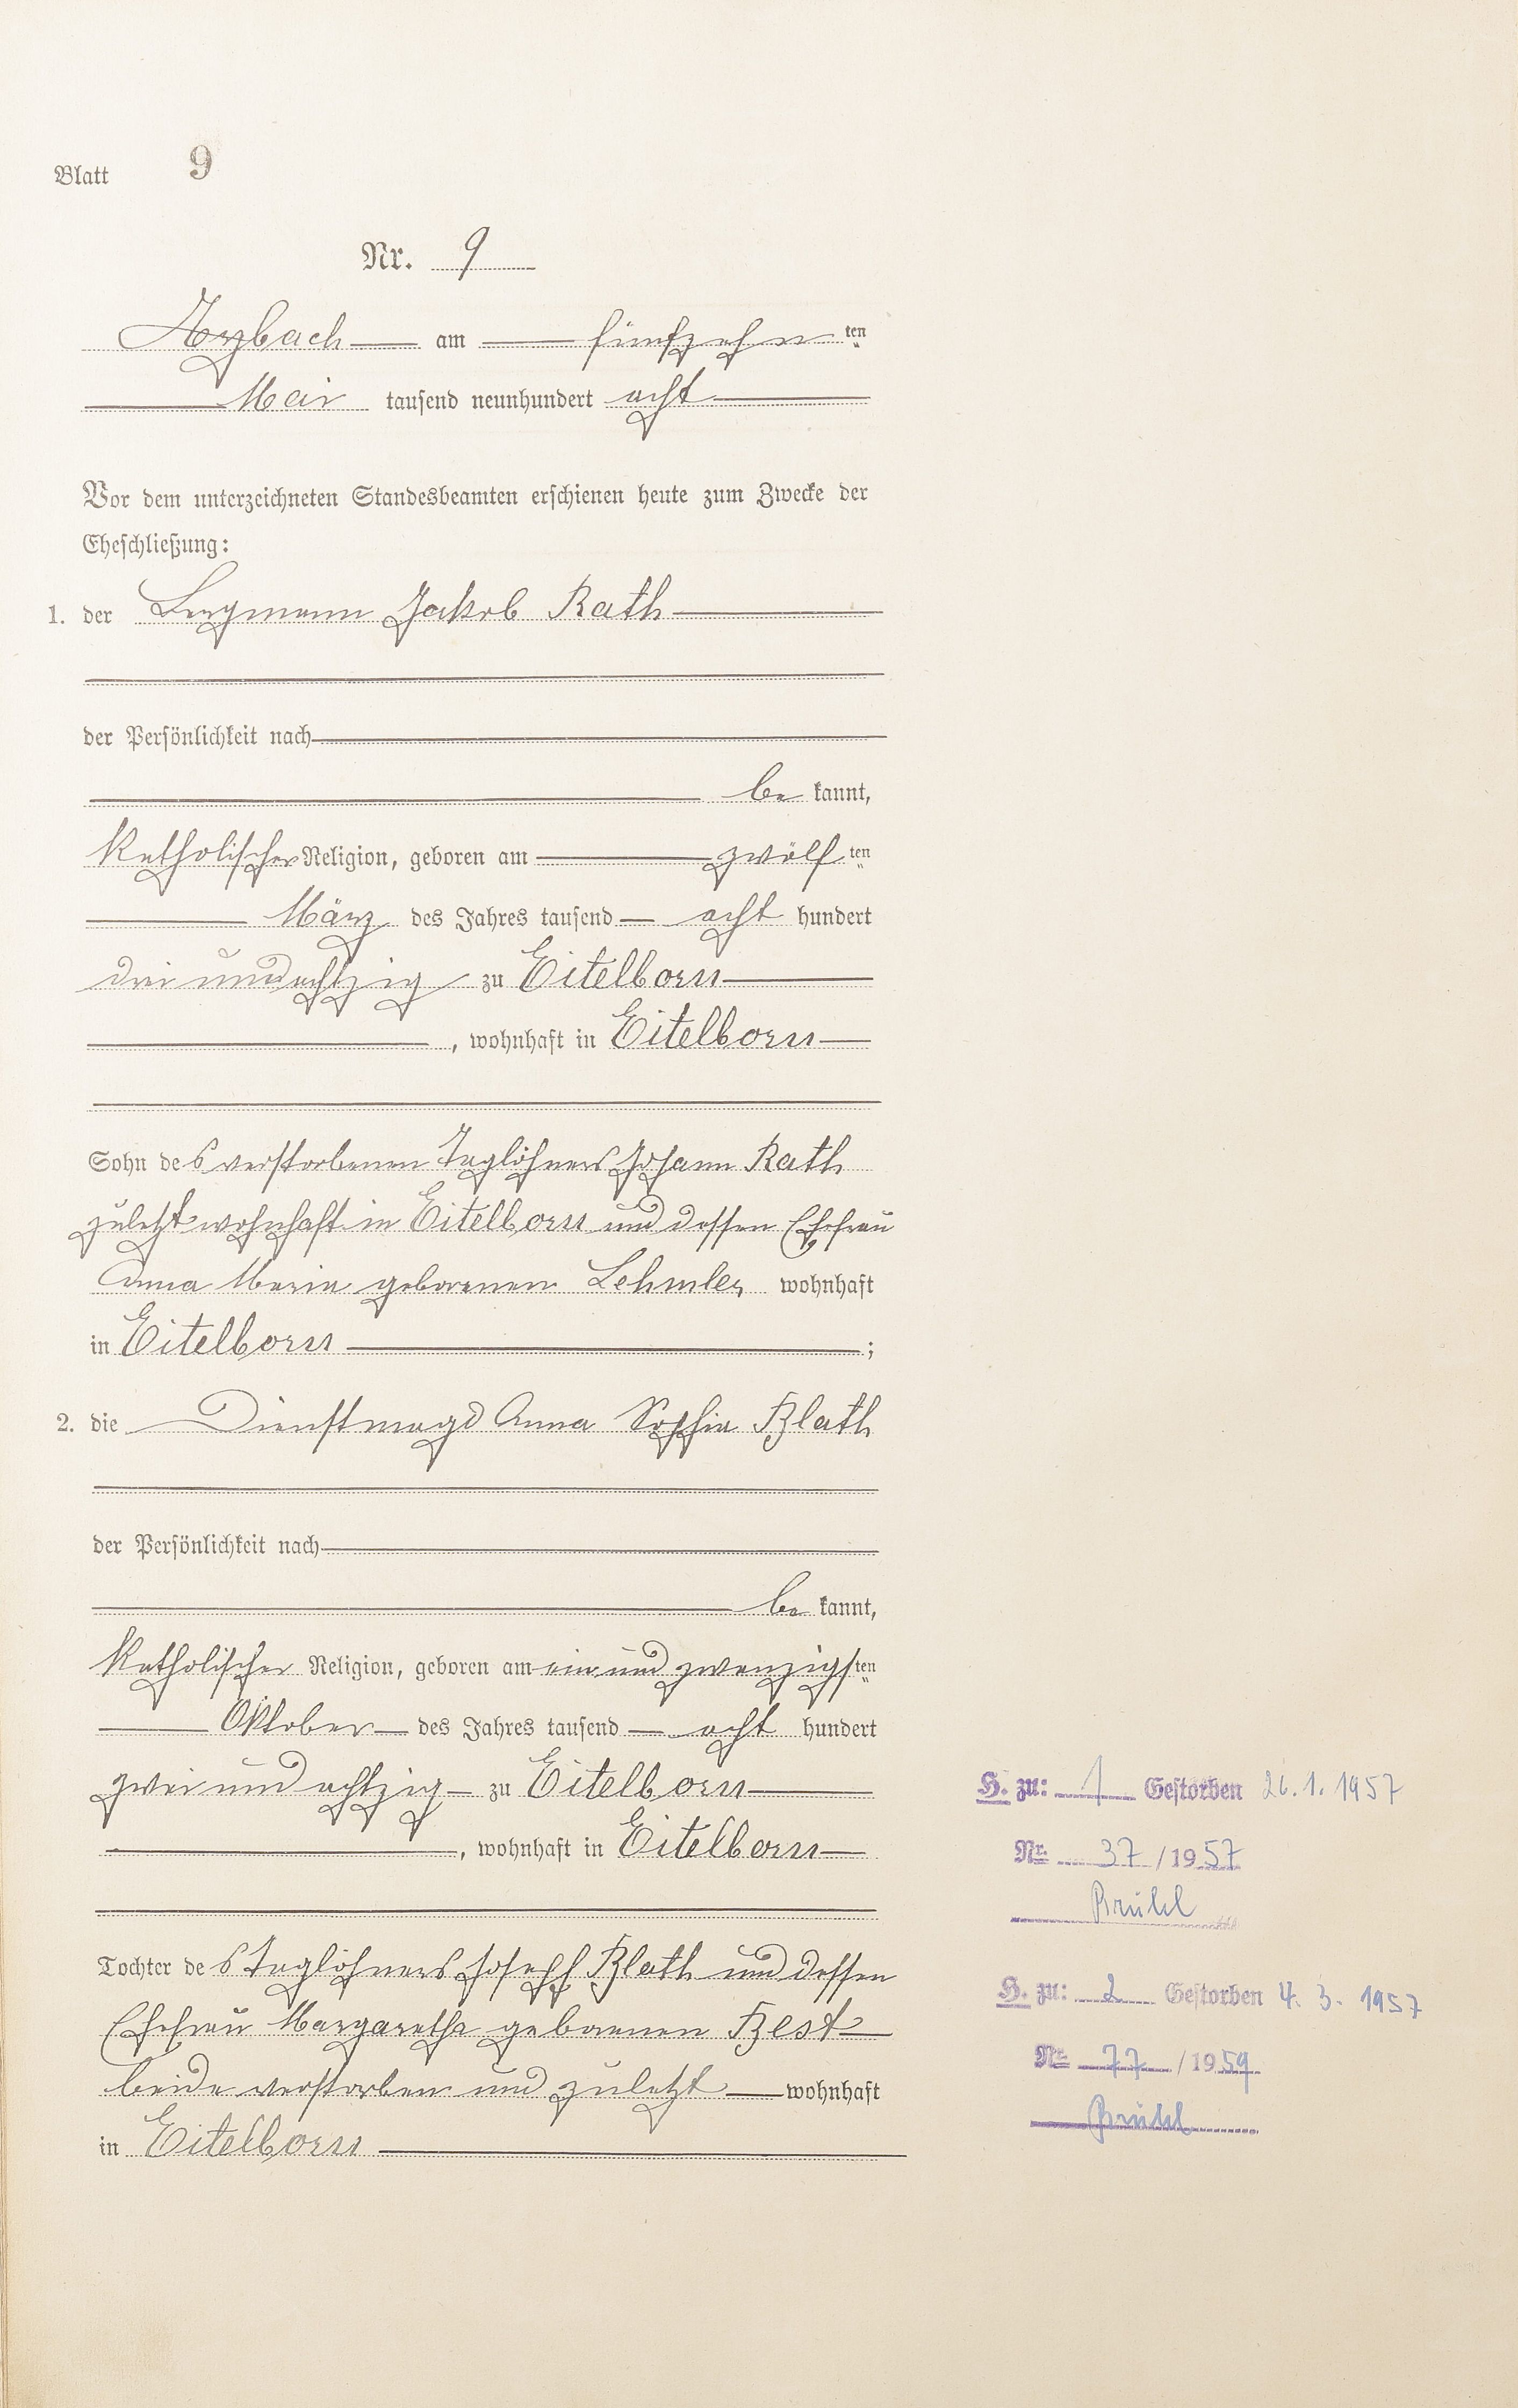 Blatt 9
Nr. 9
Arzbach am fünfzehn ten
Mai tausend neunhundert acht
Vor dem unterzeichneten Standesbeamten erschienen heute zum Zwecke der
Eheschließung:
1. der Bergmann Jakob Rath
der Persönlichkeit nach
be kannt,
katholischer Religion, geboren am zwölf ten
März des Jahres tausend acht hundert
drei und achtzig zu Eitelborn
, wohnhaft in Eitelborn
Sohn des verstorbenen Taglöhners Johann Rath
zuletzt wohnhaft in Eitelborn und dessen Ehefrau
Anna Maria geborenen Lehmler wohnhaft
in Eitelborn ;
2. die Dienstmagd Anna Sophia Blath
der Persönlichkeit nach
be kannt,
katholischer Religion, geboren am ein und zwanzigsten
Oktober des Jahres tausend acht hundert
zwei und achtzig zu Eitelborn
, wohnhaft in Eitelborn
Tochter des Taglöhners Joseph Blath und dessen
Ehefrau Margaretha geborenen Best
beide verstorben und zuletzt wohnhaft
in Eitelborn
H. zu: 1 Gestorben 26.1.1957
Nr. 37 / 1957
Brühl
H. zu: 2 Gestorben 4. 3. 1957
Nr. 77 / 1959
Brühl